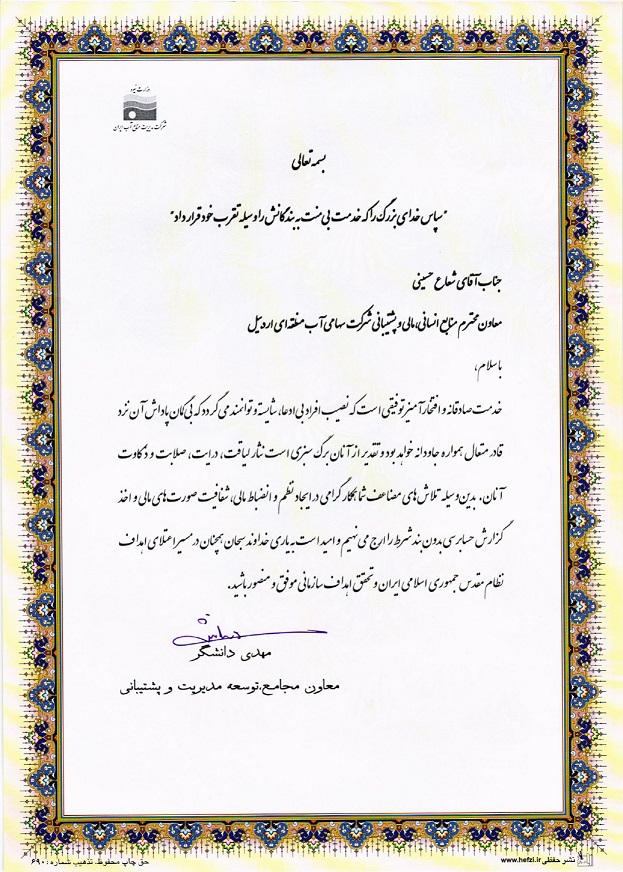 وزارت نیرو
شرکت مدیریت منابع آب ایران
بسمه تعالی
"سپاس خدای بزرگ را که خدمت بی منت به بندگانش را وسیله تقرب خود قرار داد"
جناب آقای شعاع حسینی
معاون محترم منابع انسانی، مالی و پشتیبانی شرکت سهامی آب منطقه ای اردبیل
باسلام،
خدمت صادقانه و افتخارآمیز توفیقی است که نصیب افراد بی ادعا، شایسته و توانمند می گردد که بی گمان پاداش آن نزد
قادر متعال همواره جاودانه خواهد بود و تقدیر از آنان برگ سبزی است نثار لیاقت، درایت، صلابت و ذکاوت
آنان. بدین وسیله تلاش های مضاعف شما همکار گرامی در ایجاد نظم و انضباط مالی، شفافیت صورت های مالی و اخذ
گزارش حسابرسی بدون بند شرط را ارج می نهیم و امید است به یاری خداوند سبحان همچنان در مسیر اعتلای اهداف
نظام مقدس جمهوری اسلامی ایران و تحقق اهداف سازمانی موفق و منصور باشید.
مهدی دانشگر
معاون مجامع،توسعه مدیریت و پشتیبانی
نشر حفظی www.hefzi.ir
حق چاپ محفوظ، تذهیب شماره : ۶۹۰